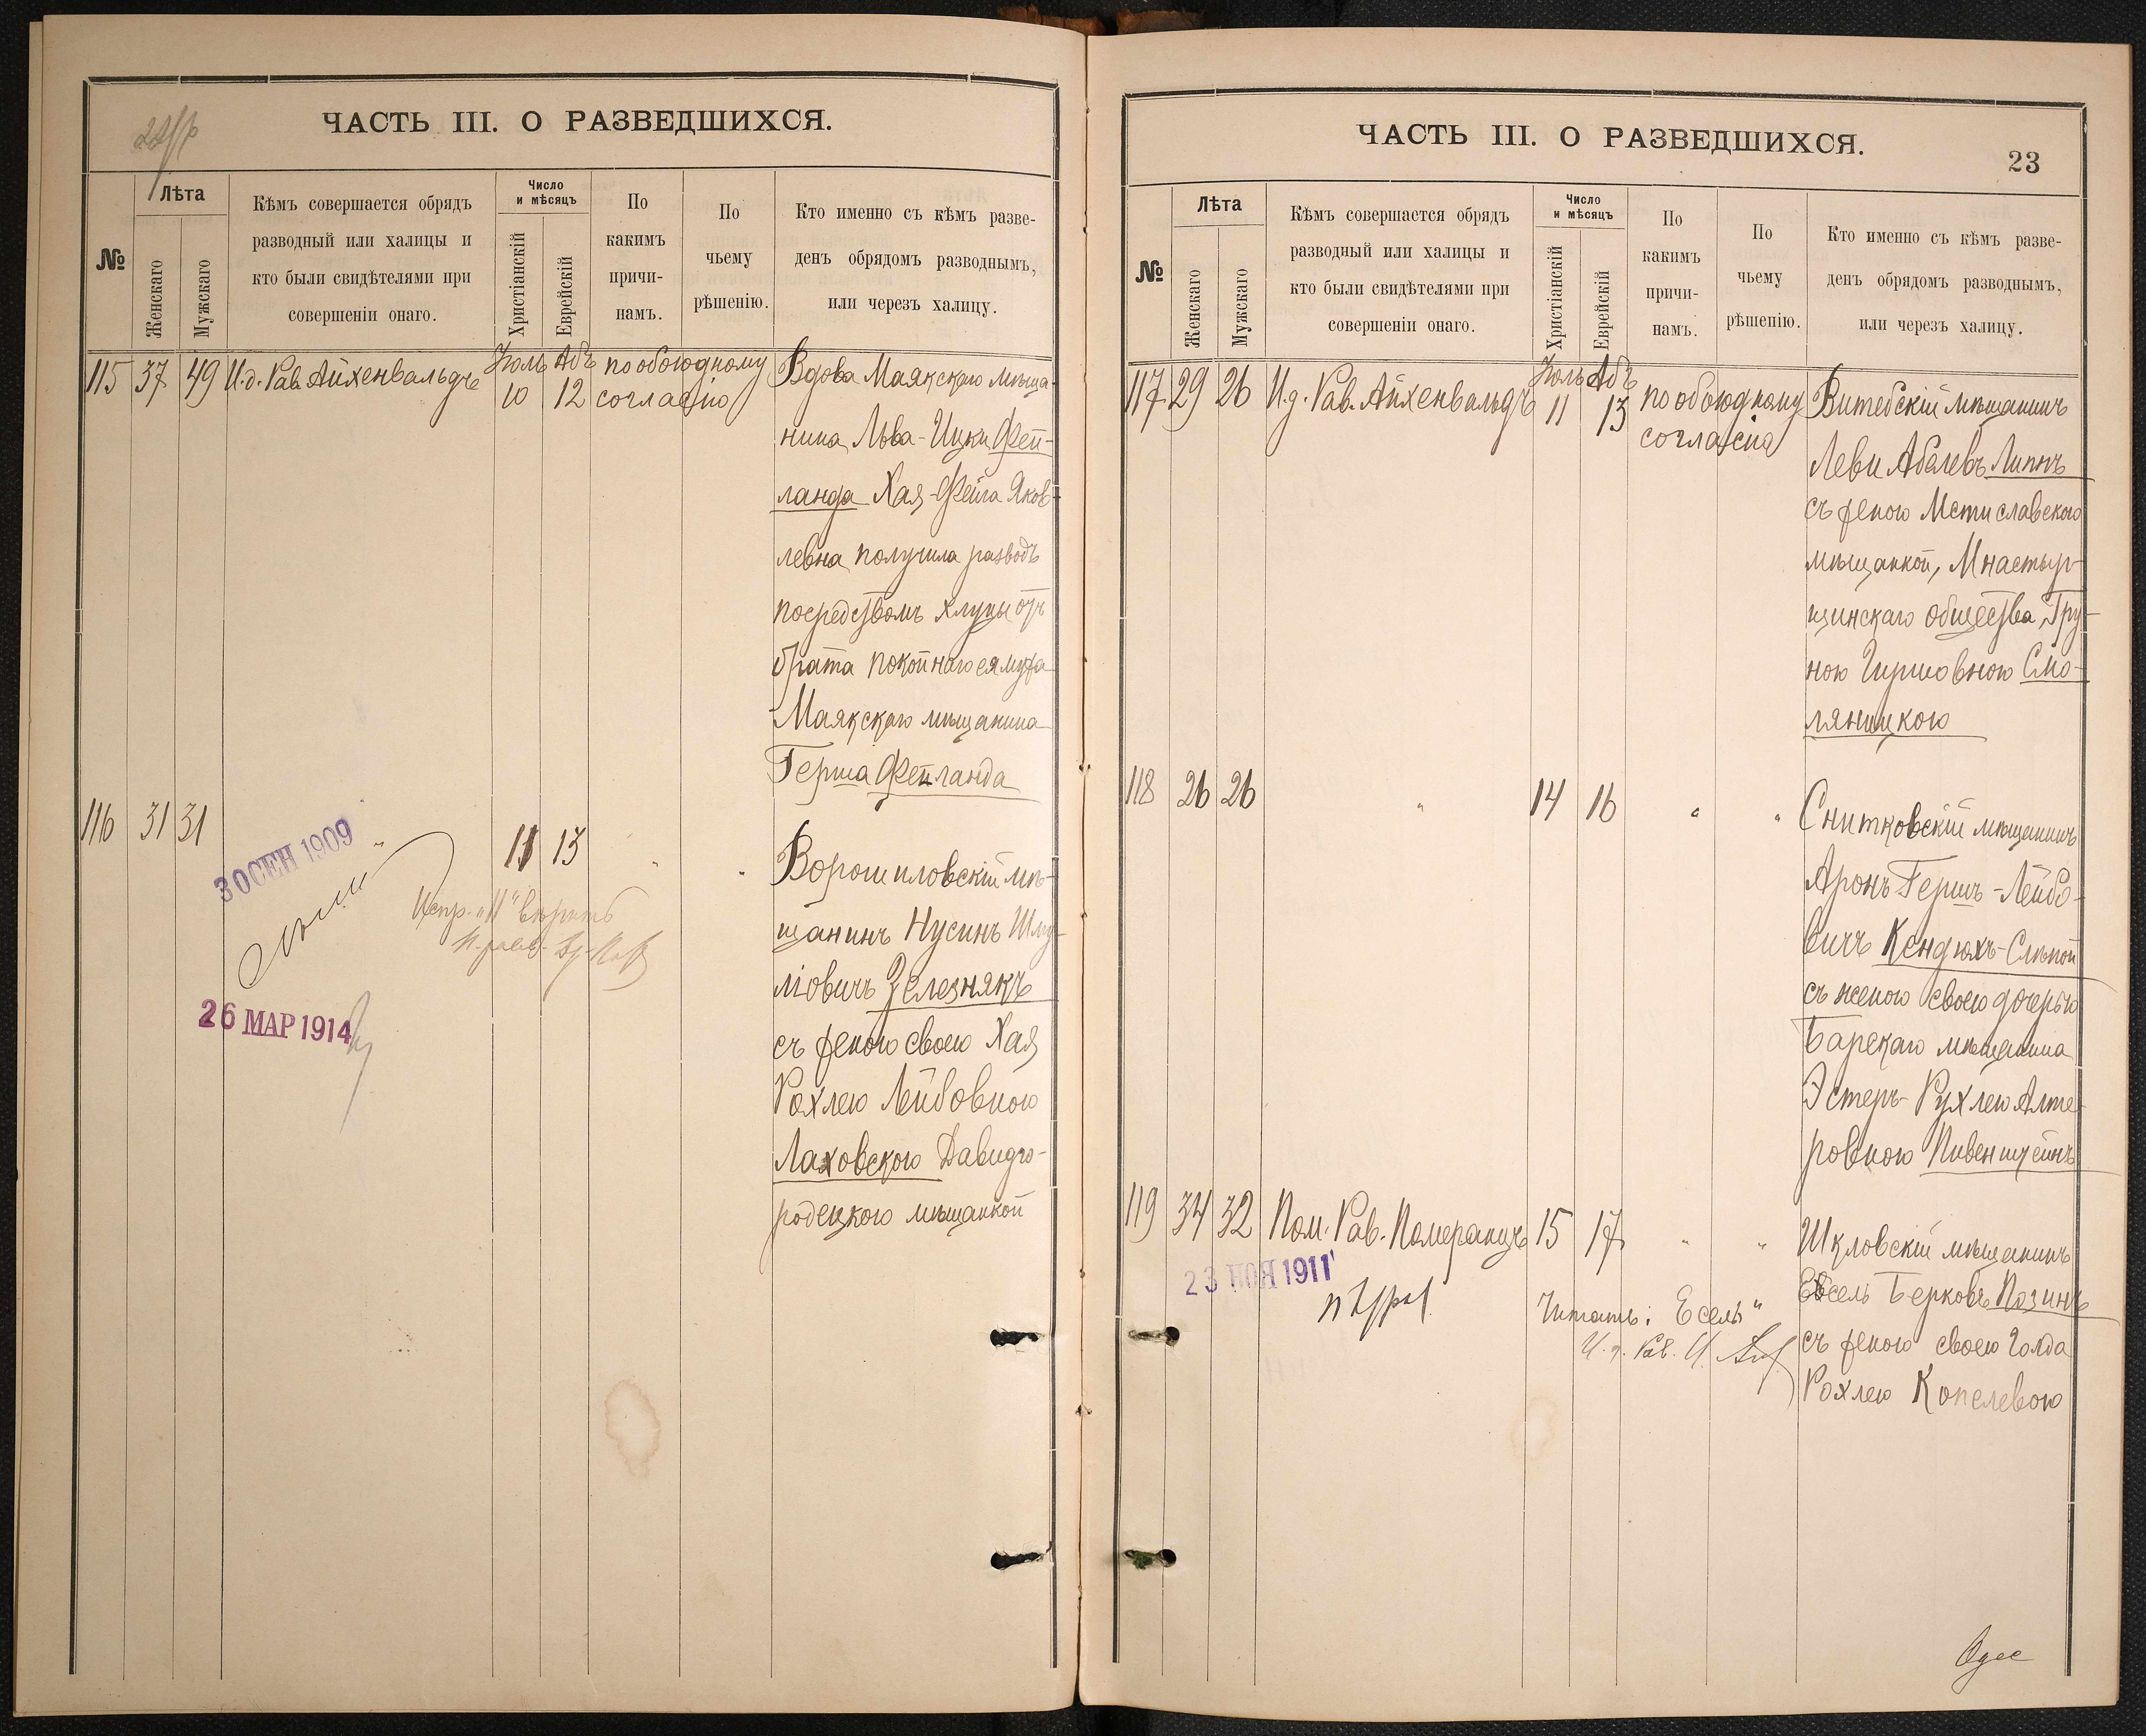 ЧАСТЬ III. О РАЗВЕДШИХСЯ.
№
Лѣта
Женскаго
Мужскаго
Кѣмъ совершается обрядъ
разводный или халицы и
кто были свидѣтелями при
совершеніи онаго.
Число
и мѣсяцъ
Христіанскій
Еврейскій
По
какимъ
причи-
намъ.
По
чьему
рѣшенію.
Кто именно съ кѣмъ разве-
денъ обрядомъ разводнымъ,
или черезъ халицу.
115 37 49 И.д. Рав. Айхенвальдъ
Іюль Абъ
10 12
по обоюдному
согласію
Вдова Маякскаго мѣща-
нина Льва-Ицки Фей-
ланда Хая-Фейга Яков-
левна получила разводъ
посредствомъ хлуцы отъ
брата покойнаго ея мужа
Маякскаго мѣщанина
Герша Фейланда
116 31 31 " 11 13 " "
Ворошиловскій мѣ-
щанинъ Нусинъ Шму-
ліовичъ Зелезнякъ
съ женою своею Хая
Рохлею Лейбовною
Лаховскою Давидго-
родецкою мѣщанкой
30 СЕН 1909
Испр. „11" вѣрить
26 МАР 1914
ЧАСТЬ III. О РАЗВЕДШИХСЯ.
23
№
Лѣта
Женскаго
Мужскаго
Кѣмъ совершается обрядъ
разводный или халицы и
кто были свидѣтелями при
совершеніи онаго.
Число
и мѣсяцъ
Христіанскій
Еврейскій
По
какимъ
причи-
намъ.
По
чьему
рѣшенію.
Кто именно съ кѣмъ разве-
денъ обрядомъ разводнымъ,
или черезъ халицу.
117 29 26 И.д. Рав. Айхенвальдъ
Іюль Абъ
11 13
по обоюдному
согласію
Витебскій мѣщанинъ
Леви Абелевъ Липнъ
съ женою Мстиславскою
мѣщанкой, Мнастыр-
щинскаго общества, Гру-
ною Гиршовною Смо-
ляницкою
118 26 26 " 14 16 " "
Снитковскій мѣщанинъ
Аронъ Гершъ-Лейбо-
вичъ Кендюхъ-Слѣпой
съ женою своею дочерью
Барскаго мѣщанина
Эстеръ-Рухлею Алте-
ровною Пивенштейнъ
119 34 32 Пом. Рав. Померанцъ 15 17 " "
Шкловскій мѣщанинъ
Евсель Берковъ Позинъ
съ женою своею Голда
Рохлею Копелевою
23 НОЯ 1911
Читать: Есель"
И. д. Рав.
Одес